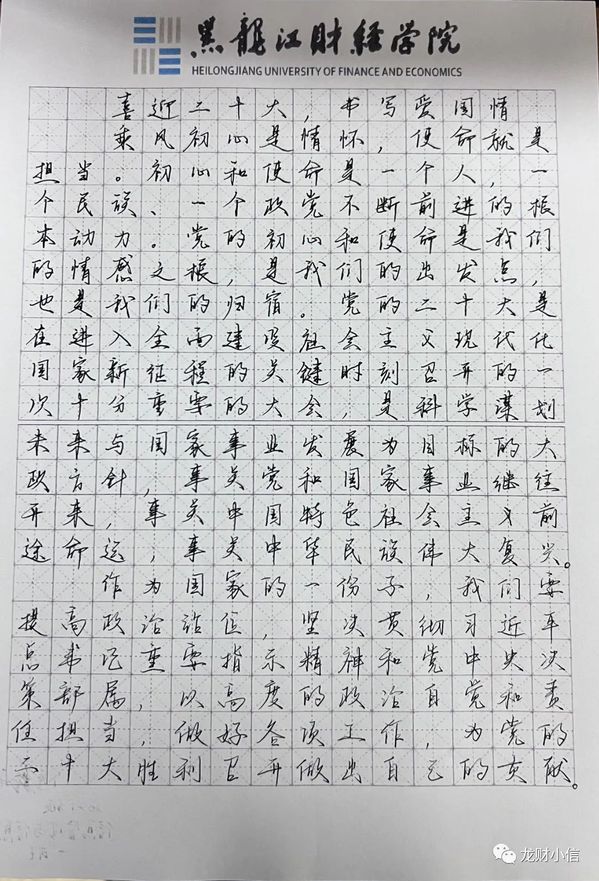 黑龍江财经学院
HEILONGJIANG UNIVERSITY OF FINANCE AND ECONOMICS
喜迎二十大，书写爱国情
乘风初心是情怀，使命就是
担当。初心和使命是一个人，一
个民族、一个政党不断前进的根
本动力。党的初心和使命是我们
的情感之根，是我们的出发点，
也是我们的归宿。党的二十大是
在进入全面建设社会主义现代化
国家新征程的关键时刻召开的一
次十分重要的大会，是科学谋划
未来与国家事业发展为目标的大
政方针，事关党和国家事业继往
开来，事关中国特色社会主义前
途命运，事关中华民族伟大复兴。
作为国家的一份子，我们要
提高政治站位，坚决贯彻习近平
总书记重要指示精神和党中央决
策部属，以高度的政治自觉和责
任担当，做好各项工作，为党的
二十大胜利召开做出自己的贡献。
龙财小信